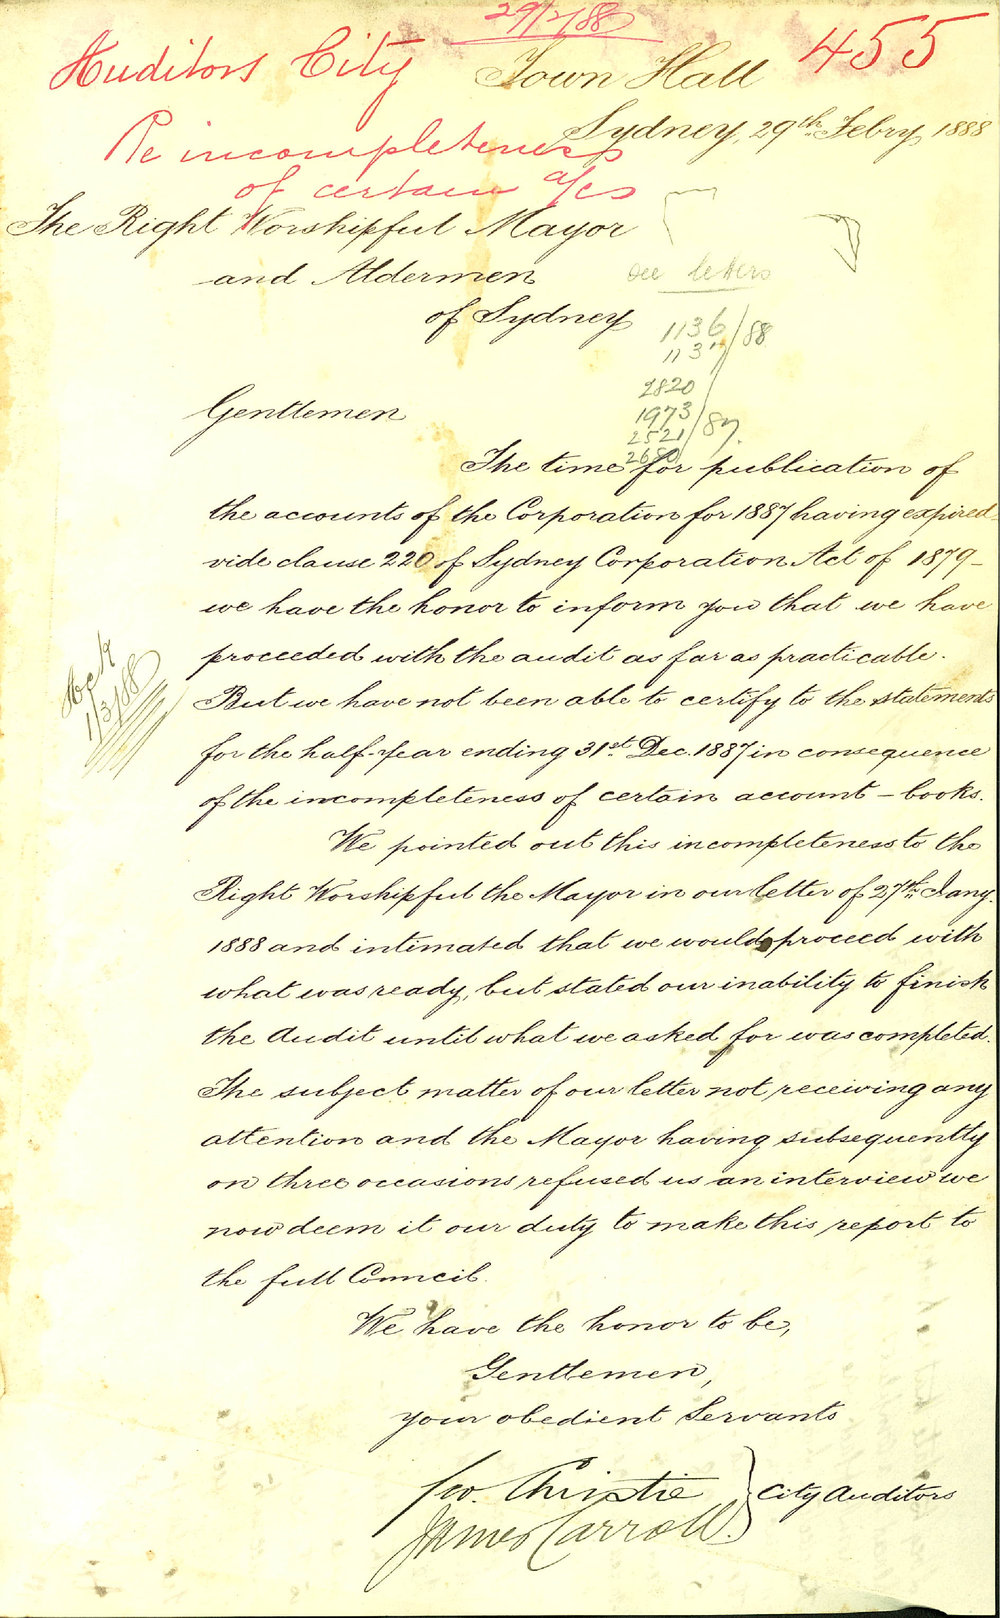 29/2/88
Auditors City
Town Hall
455
Sydney, 29th Febry 1888
Re incompleteness
of certain a/cs
The Right Worshipful Mayor
and Aldermen
of Sydney
see letters
1136/88
1137
2820
1973/87.
2521
2680
Gentlemen
The time for publication of
the accounts of the Corporation for 1887 having expired -
vide clause 220 of Sydney Corporation Act of 1879 -
we have the honor to inform you that we have
proceeded with the audit as far as practicable.
But we have not been able to certify to the statements
for the half-year ending 31st Dec. 1887 in consequence
of the incompleteness of certain account - books.
We pointed out this incompleteness to the
Right Worshipful the Mayor in our letter of 27th Jany.
1888 and intimated that we would proceed with
what was ready, but stated our inability to finish
the Audit until what we asked for was completed.
The subject matter of our letter not receiving any
attention and the Mayor having subsequently
on three occasions refused us an interview we
now deem it our duty to make this report to
the full Council.
We have the honor to be,
Gentlemen,
your obedient Servants
Geo. Christie
James Carroll.
City Auditors
1/3/88